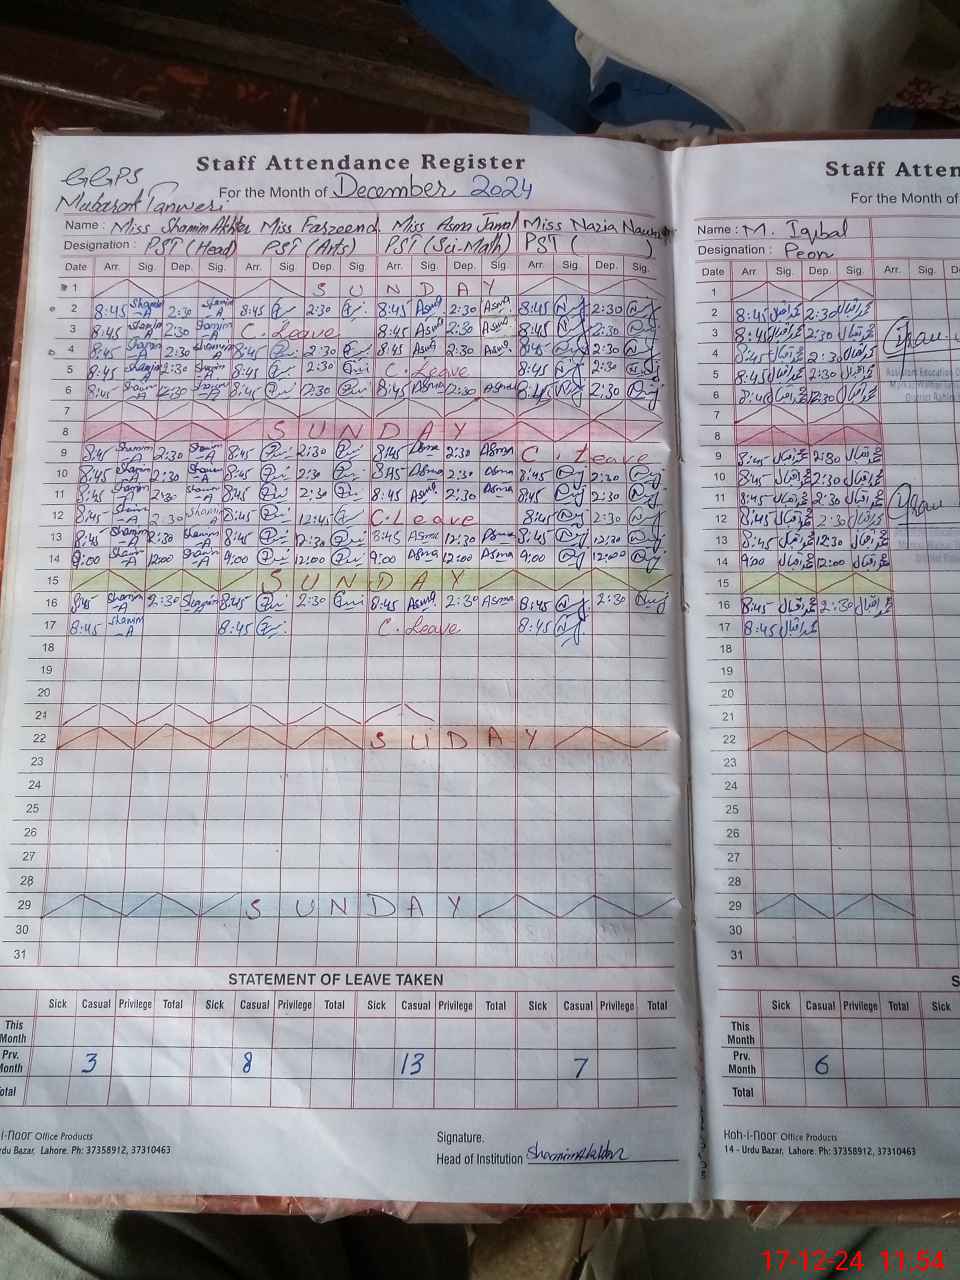 Staff Attendance Register
GGPS
For the Month of December 2024
Mubarak Tanweri
Name : Miss Shamim Akhter Miss Farzeend Miss Asma Jamal Miss Nazia
Designation : PST (Head) PST (Arts) PST (Sci-Math) PST ( )
Date Arr. Sig. Dep. Sig. Arr. Sig. Dep. Sig. Arr. Sig. Dep. Sig. Arr. Sig. Dep. Sig.
1 S U N D A Y
2 8:45 Shamim -A 2:30 Shamim -A 8:45 2:30 8:45 Asma 2:30 Asma 8:45 2:30
3 8:45 Shamim -A 2:30 Shamim -A C. Leave 8:45 Asma 2:30 Asma 8:45 2:30
4 8:45 Shamim -A 2:30 Shamim -A 8:45 2:30 8:45 Asma 2:30 Asma 8:45 2:30
5 8:45 Shamim -A 2:30 Shamim -A 8:45 2:30 C. Leave 8:45 2:30
6 8:45 Shamim -A 12:30 Shamim -A 8:45 12:30 8:45 Asma 12:30 Asma 8:45 12:30
7
8 S U N D A Y
9 8:45 Shamim -A 2:30 Shamim -A 8:45 2:30 8:45 Asma 2:30 Asma C. Leave
10 8:45 Shamim -A 2:30 Shamim -A 8:45 2:30 8:45 Asma 2:30 Asma 8:45 2:30
11 8:45 Shamim 2:30 Shamim -A 8:45 2:30 8:45 Asma 2:30 Asma 8:45 2:30
12 8:45 Shamim -A 2:30 Shamim -A 8:45 12:45 C. Leave 8:45 2:30
13 8:45 Shamim -A 12:30 Shamim -A 8:45 12:30 8:45 Asma 12:30 Asma 8:45 12:30
14 9:00 Shamim -A 12:00 Shamim -A 9:00 12:00 9:00 Asma 12:00 Asma 9:00 12:00
15 S U N D A Y
16 8:45 Shamim -A 2:30 Shamim 8:45 2:30 8:45 Asma 2:30 Asma 8:45 2:30
17 8:45 Shamim -A 8:45 C. Leave 8:45
18
19
20
21
22 S U D A Y
23
24
25
26
27
28
29 S U N D A Y
30
31
STATEMENT OF LEAVE TAKEN
Sick Casual Privilege Total Sick Casual Privilege Total Sick Casual Privilege Total Sick Casual Privilege Total
This Month
Prv. Month 3 8 13 7
Total
-i-noor Office Products
Urdu Bazar, Lahore. Ph: 37358912, 37310463
Signature.
Head of Institution Shamim Akhter
Staff Atten
For the Month o
Name : M. Iqbal
Designation : Peon
Date Arr. Sig. Dep. Sig. Arr. Sig
1
2 8:45 محمد اقبال 2:30 محمد اقبال
3 8:45 محمد اقبال 2:30 محمد اقبال
4 8:45 محمد اقبال 2:30 محمد اقبال
5 8:45 محمد اقبال 2:30 محمد اقبال
Assistant Education O
6 8:45 محمد اقبال 12:30 محمد اقبال
7
8
9 8:45 محمد اقبال 2:30 محمد اقبال
10 8:45 محمد اقبال 2:30 محمد اقبال
11 8:45 محمد اقبال 2:30 محمد اقبال
12 8:45 محمد اقبال 2:30 محمد اقبال
13 8:45 محمد اقبال 12:30 محمد اقبال
14 9:00 محمد اقبال 12:00 محمد اقبال
15
16 8:45 محمد اقبال 2:30 محمد اقبال
17 8:45 محمد اقبال
18
19
20
21
22
23
24
25
26
27
28
29
30
31
S
Sick Casual Privilege Total Sick
This Month
Prv. Month 6
Total
Koh-i-noor Office Products
14 - Urdu Bazar, Lahore. Ph: 37358912, 37310463
17-12-24 11:54